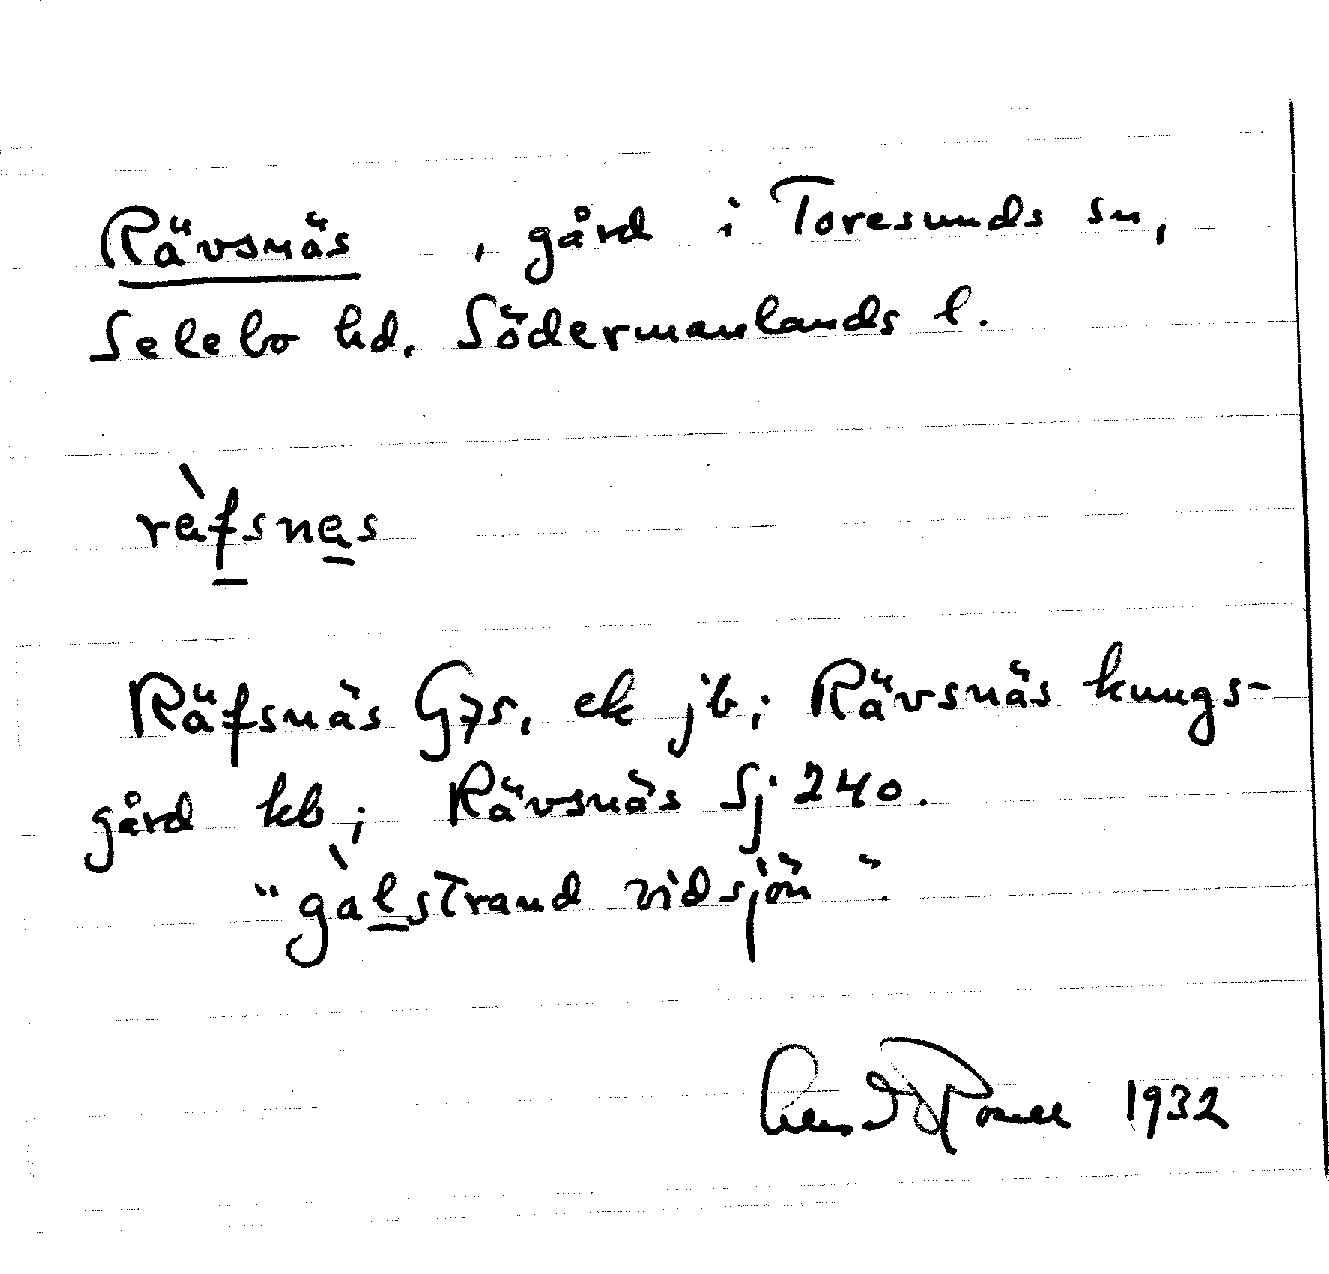 Rävsnäs , gård i Toresunds sn,
Selebo hd. Södermanlands l.
rèfsnes
Räfsnäs Gjs, ek jb; Rävsnäs kungs-
gård kb; Rävsnäs Sj 240.
"gàlstrand vidsjön".
1932